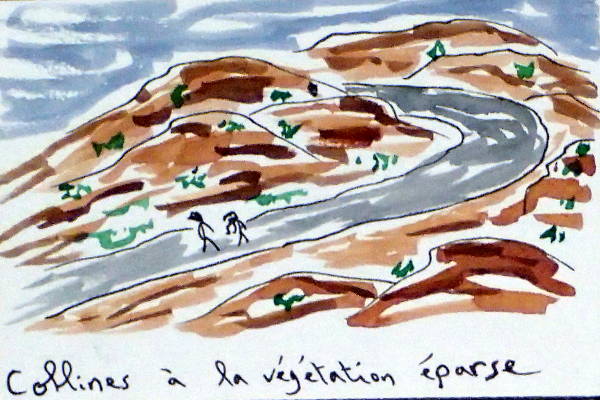 Collines à la végétation éparse